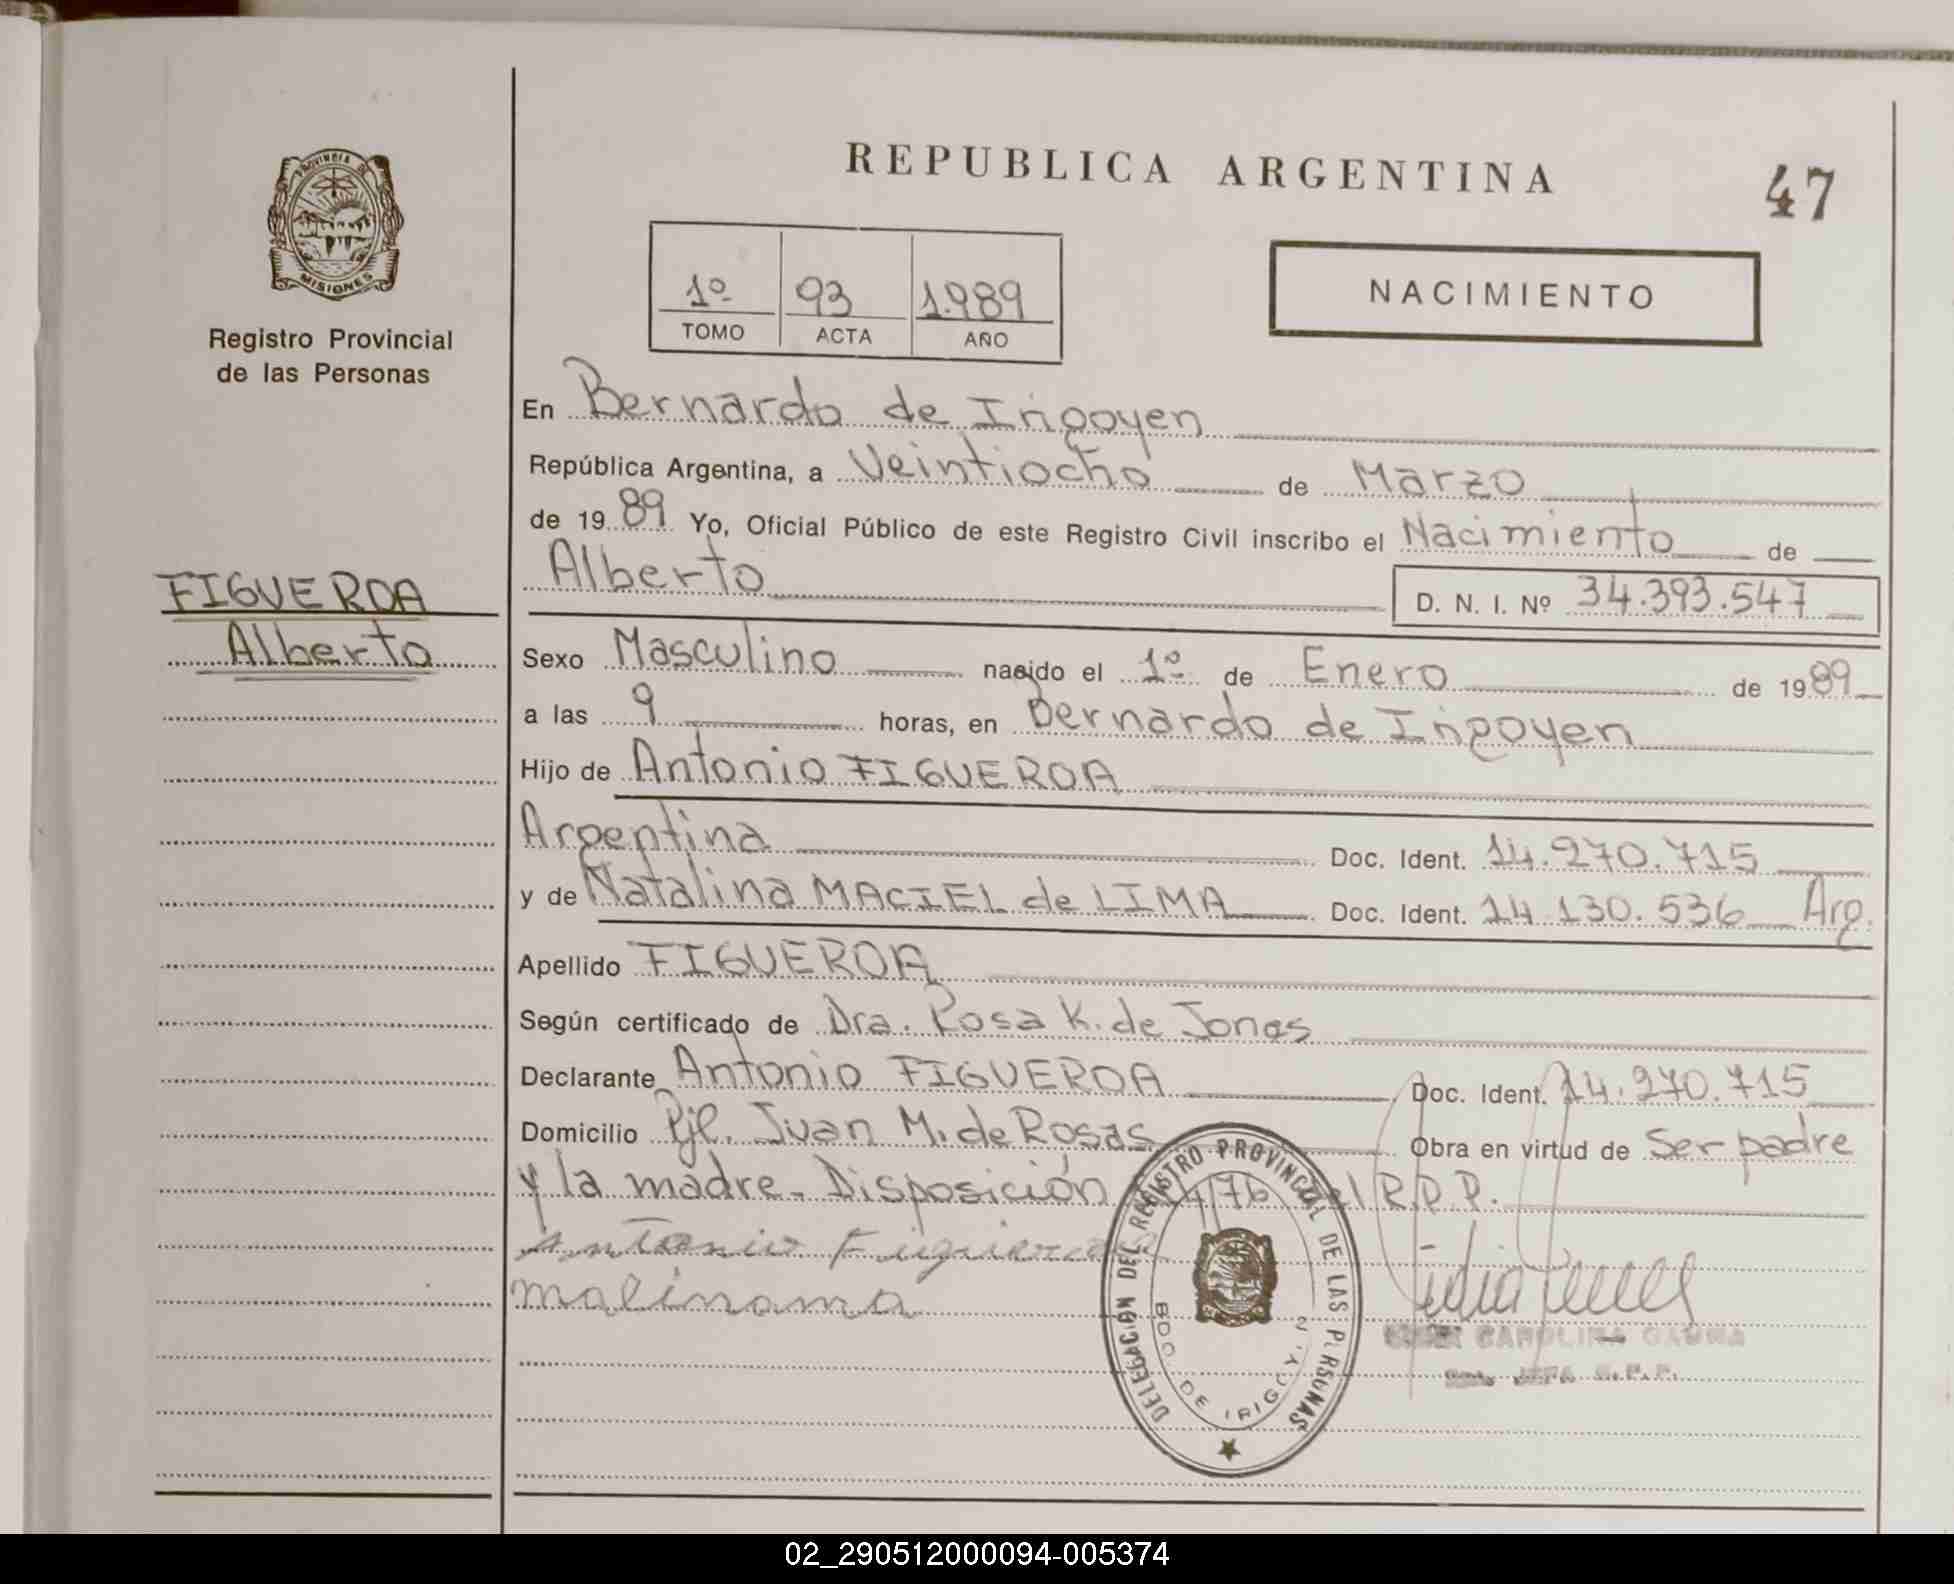 REPUBLICA ARGENTINA
47
PROVINCIA DE
MISIONES
Registro Provincial
de las Personas
1º 93 1.989
TOMO ACTA AÑO
NACIMIENTO
En Bernardo de Irigoyen
República Argentina, a Veintiocho de Marzo
de 1989 Yo, Oficial Público de este Registro Civil inscribo el Nacimiento de
Alberto D. N. I. Nº 34.393.547
FIGUEROA
Alberto
Sexo Masculino nacido el 1º de Enero de 1989
a las 9 horas, en Bernardo de Irigoyen
Hijo de Antonio FIGUEROA
Argentina Doc. Ident. 14.270.715
y de Natalina MACIEL de LIMA Doc. Ident. 14.130.536 Arg.
Apellido FIGUEROA
Según certificado de Dra. Rosa K. de Jonas
Declarante Antonio FIGUEROA Doc. Ident. 14.270.715
Domicilio Pje. Juan M. de Rosas Obra en virtud de Ser padre
y la madre. Disposición /76 del R.P.P.
Antonio Figueroa
DELEGACION DEL REGISTRO PROVINCIAL DE LAS PERSONAS
BDO. DE IRIGOY.
CAROLINA
JEFA R.P.P.
02_290512000094-005374